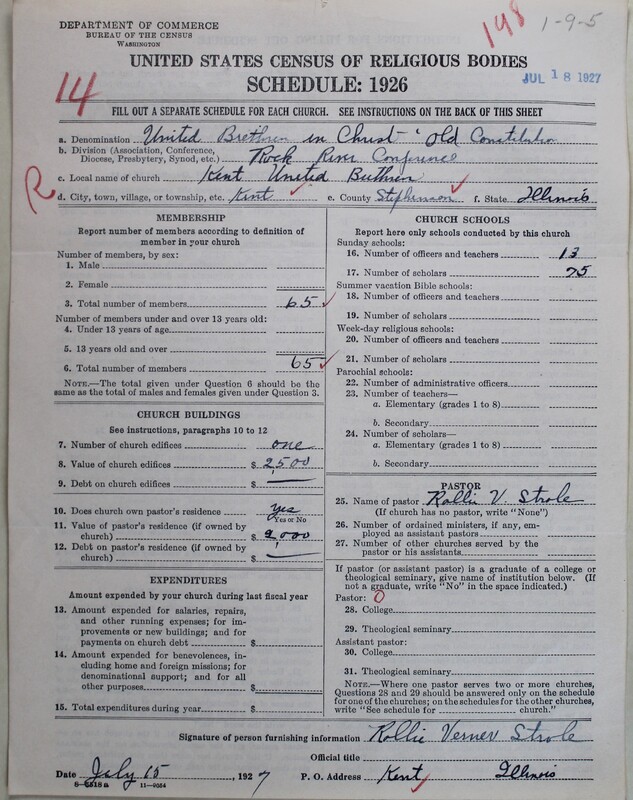 DEPARTMENT OF COMMERCE
BUREAU OF THE CENSUS
WASHINGTON
198
1-9-5
UNITED STATES CENSUS OF RELIGIOUS BODIES
SCHEDULE: 1926
JUL 18 1927
14
FILL OUT A SEPARATE SCHEDULE FOR EACH CHURCH. SEE INSTRUCTIONS ON THE BACK OF THIS SHEET
a. Denomination United Brethren in Christ "Old Constitution
b. Division (Association, Conference, Diocese, Presbytery, Synod, etc.) Rock River Conference
c. Local name of church Kent United Brethren
R
d. City, town, village, or township, etc. Kent e. County Stephenson f. State Illinois
MEMBERSHIP
Report number of members according to definition of member in your church
Number of members, by sex:
1. Male
2. Female
3. Total number of members 65
Number of members under and over 13 years old:
4. Under 13 years of age
5. 13 years old and over
6. Total number of members 65
NOTE.—The total given under Question 6 should be the
same as the total of males and females given under Question 3.
CHURCH BUILDINGS
See instructions, paragraphs 10 to 12
7. Number of church edifices one
8. Value of church edifices $ 2,500
9. Debt on church edifices $
10. Does church own pastor's residence yes
Yes or No
11. Value of pastor's residence (if owned by
church) $ 2,000
12. Debt on pastor's residence (if owned by
church) $
EXPENDITURES
Amount expended by your church during last fiscal year
13. Amount expended for salaries, repairs,
and other running expenses; for im-
provements or new buildings; and for
payments on church debt $
14. Amount expended for benevolences, in-
cluding home and foreign missions; for
denominational support; and for all
other purposes $
15. Total expenditures during year $
CHURCH SCHOOLS
Report here only schools conducted by this church
Sunday schools:
16. Number of officers and teachers 13
17. Number of scholars 75
Summer vacation Bible schools:
18. Number of officers and teachers
19. Number of scholars
Week-day religious schools:
20. Number of officers and teachers
21. Number of scholars
Parochial schools:
22. Number of administrative officers
23. Number of teachers—
a. Elementary (grades 1 to 8)
b. Secondary
24. Number of scholars—
a. Elementary (grades 1 to 8)
b. Secondary
PASTOR
25. Name of pastor Rollie V. Strole
(If church has no pastor, write "None")
26. Number of ordained ministers, if any, em-
ployed as assistant pastors
27. Number of other churches served by the
pastor or his assistants
If pastor (or assistant pastor) is a graduate of a college or
theological seminary, give name of institution below. (If
not a graduate, write "No" in the space indicated.)
Pastor: 0
28. College
29. Theological seminary
Assistant pastor:
30. College
31. Theological seminary
NOTE.—Where one pastor serves two or more churches,
Questions 28 and 29 should be answered only on the schedule
for one of the churches; on the schedules for the other churches,
write "See schedule for church."
Signature of person furnishing information Rollie Verner Strole
Official title
Date July 15, 1927 P. O. Address Kent Illinois
8-5518a 11-9054